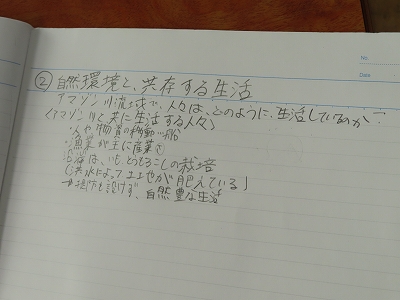 No.
Date
② 自然環境と、共存する生活
アマゾン川流域で、人々は、どのように、生活しているのか?
〈アマゾン川と共に生活する人々〉
・人や物資の移動→船
・漁業が主に産業
は、いも、とうもろこしの栽培
洪水によって土地が肥えている」
→堤防を設けず、自然豊な生活